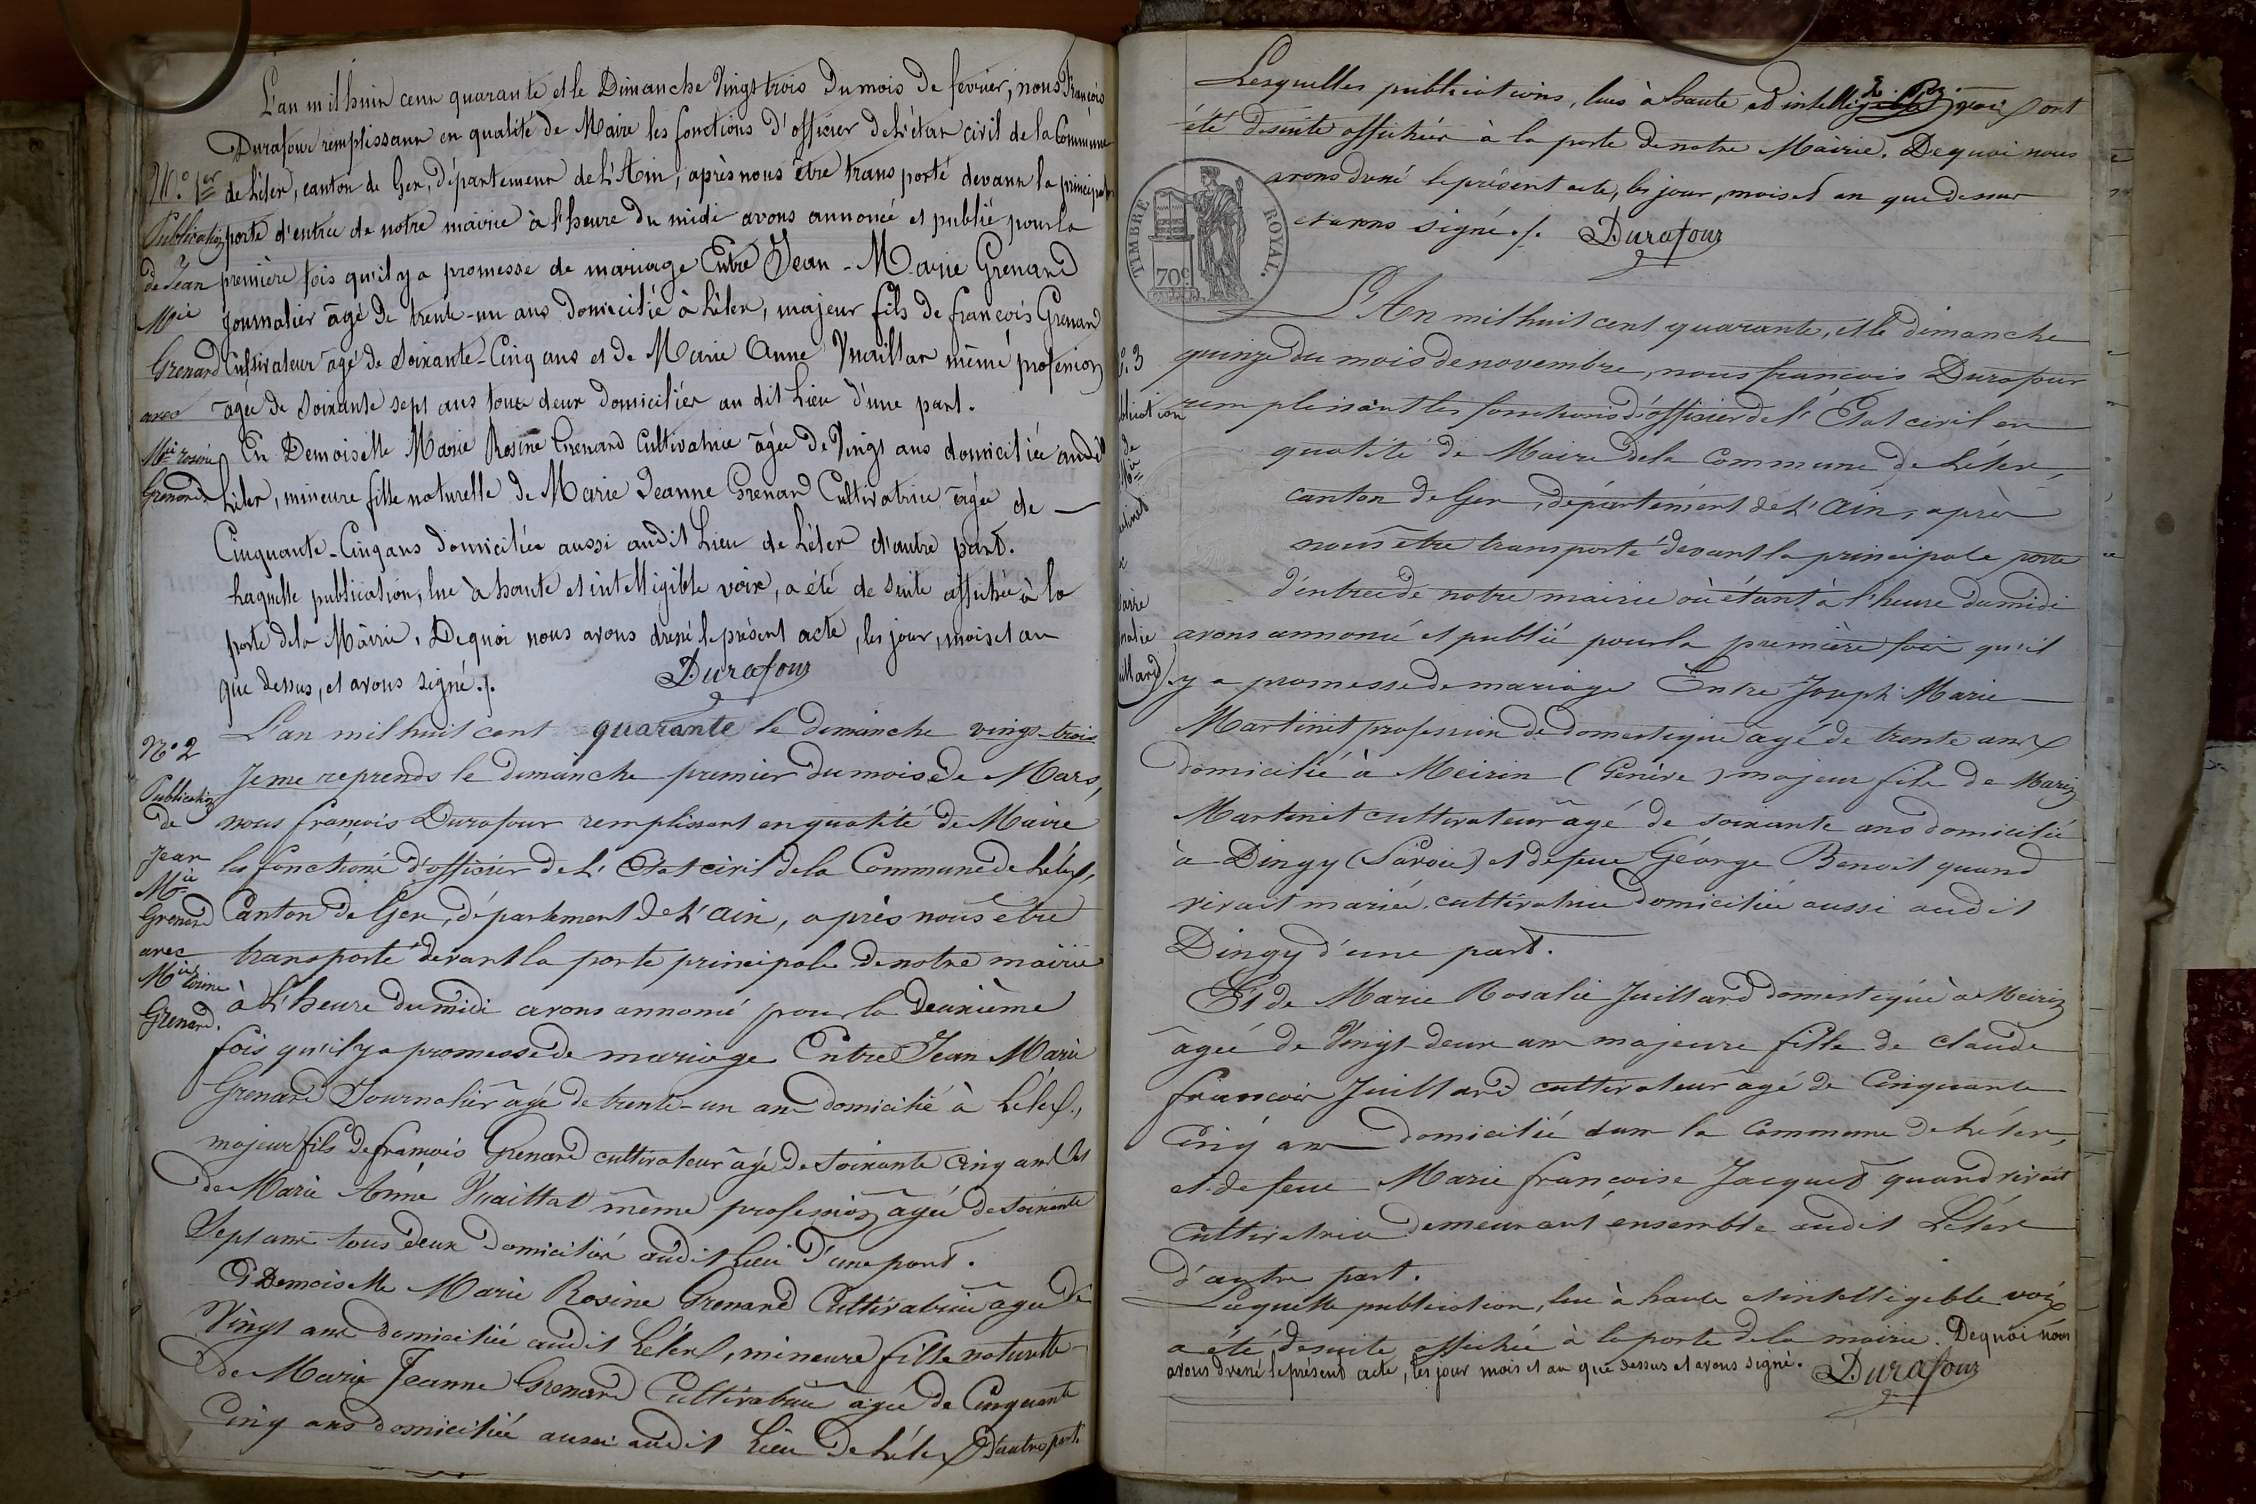 L'an mil huit cent quarante et le Dimanche Vingt trois du mois de fevrier, nous François
Durafour remplissant en qualité de Maire les fonctions d'officier de l'état civil de la Commune
N.º 1er de Lélex, canton de Gex, département de L'Ain, après nous être transporté devant la principale
Publication porte d'entrée de notre mairie à l'heure du midi avons annoncé et publié pour la
de Jean première fois qu'il y a promesse de mariage Entre Jean-Marie Grenard
Mie journalier âgé de trente-un ans domicilié à Lélex, majeur fils de francois Grenard
Grenard Cultivateur âgé de Soixante-Cinq ans et de Marie Anne même profession
avec âgée de Soixante sept ans tous deux domiciliés au dit Lieu d'une part.
Mie rosine Et Demoiselle Marie Rosine Grenard Cultivatrice âgée de Vingt ans domiciliée audit
Grenard Lélex, mineure fille naturelle de Marie Jeanne Grenard Cultivatrice âgée de
Cinquante-Cinq ans domiciliée aussi audit Lieu de Lélex d'autre part.
Laquelle publication, lue à haute et intelligible voix, a été de suite affichée à la
porte de la Mairie. De quoi nous avons dressé le présent acte, les jour, mois et an
que dessus, et avons signé ./.
Durafour
L'an mil huit cent quarante le dimanche vingt-trois
Nº 2 Je me reprends le dimanche premier du mois de Mars,
Publication
de nous françois Durafour remplissant en qualité de Maire
Jean les fonctions d'officier de L'Etat civil de la Commune de Lélex,
Mie
Grenard Canton de Gex, département de L'Ain, après nous être
avec transporté devant la porte principale de notre mairie
Mie rosine à L'heure du midi avons annoncé pour la deuxième
Grenard. fois qu'il y a promesse de mariage Entre Jean Marie
Grenard Journalier âgé de trente-un ans domicilié à Lélex,
majeur fils de francois Grenard cultivateur âgé de Soixante Cinq ans et
de Marie Anne même profession âgée de Soixante
Sept ans tous deux domiciliés audit Lieu d'une part.
Et Demoiselle Marie Rosine Grenard Cultivatrice âgée de
Vingt ans domiciliée audit Lélex, mineure fille naturelle
de Marie Jeanne Grenard Cultivatrice âgée de Cinquante
Cinq ans domiciliée aussi audit Lieu de Lélex d'autre part.
Lesquelles publications, lues à haute et intelligible voix sont
été de suite affichées à la porte de notre Mairie. De quoi nous
avons dressé le présent acte, les jour, mois et an que dessus
et avons signé ./. Durafour
TIMBRE ROYAL.
70c
L'An mil huit cent quarante, et le dimanche
º. 3 quinze du mois de novembre, nous francois Durafour
blication remplissant les fonctions d'officier de l'Etat civil en
de qualité de Maire de la Commune de Lélex,
Mie canton de Gex, département de L'Ain, après
nous être transporté devant la principale porte
d'entrée de notre mairie où étant à l'heure du midi
avons annoncé et publié pour la première fois qu'il
y a promesse de mariage Entre Joseph Marie
Martinet profession de domestique âgé de trente ans
domicilié à Meirin (Genève) majeur fils de Marie
Martinet cultivateur âgé de soixante ans domicilié
à Dingy (Savoie) et de feue Géorge Benoit quand
vivait mariée, cultivatrice domiciliée aussi audit
Dingy d'une part.
Et de Marie Rosalie Juillard domestique à Meirin
âgée de Vingt-deux ans majeure fille de claude
francois Juillard cultivateur âgé de Cinquante
Cinq ans domicilié dans la Commune de Lélex,
et de feue Marie françoise Jacquet quand vivait
Cultivatrice demeurant ensemble audit Lélex
d'autre part.
Laquelle publication, lue à haute et intelligible voix
a été de suite affichée à la porte de la mairie. De quoi nous
avons dressé le présent acte, les jour mois et an que dessus et avons signé. Durafour